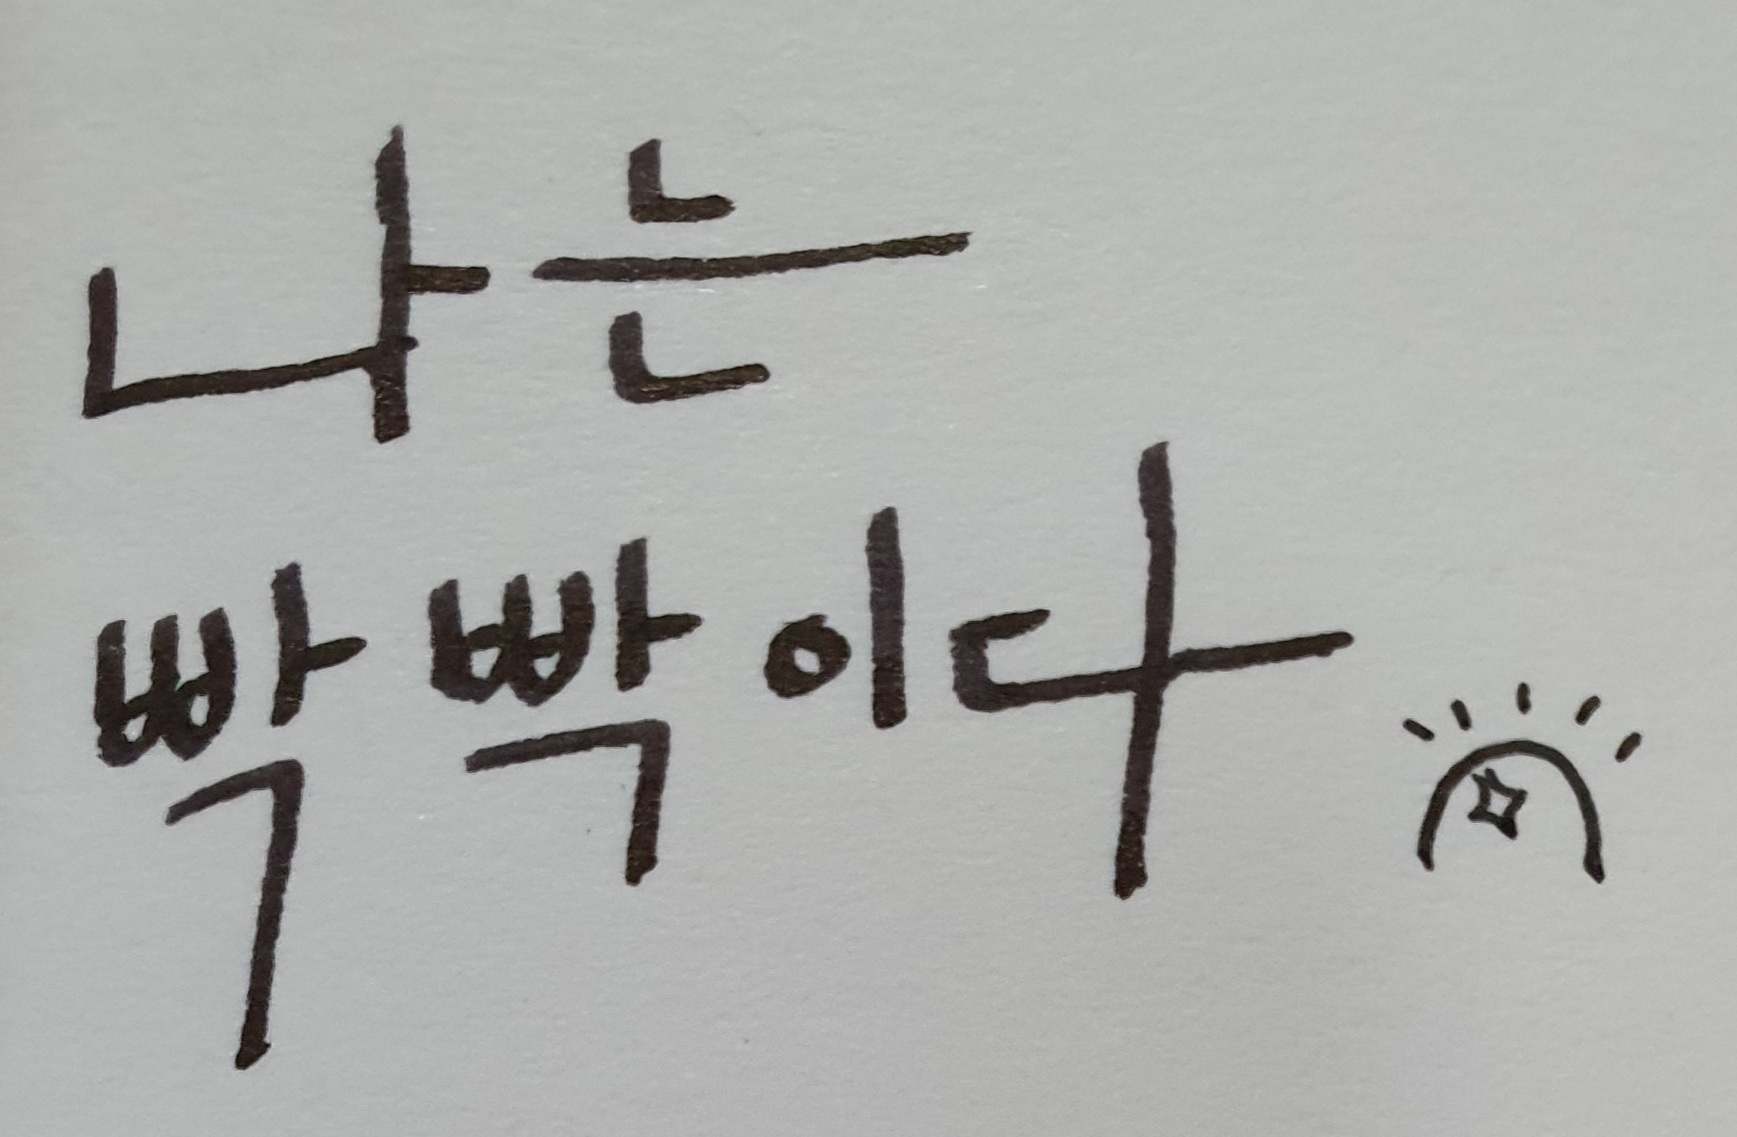 나는
빡빡이다